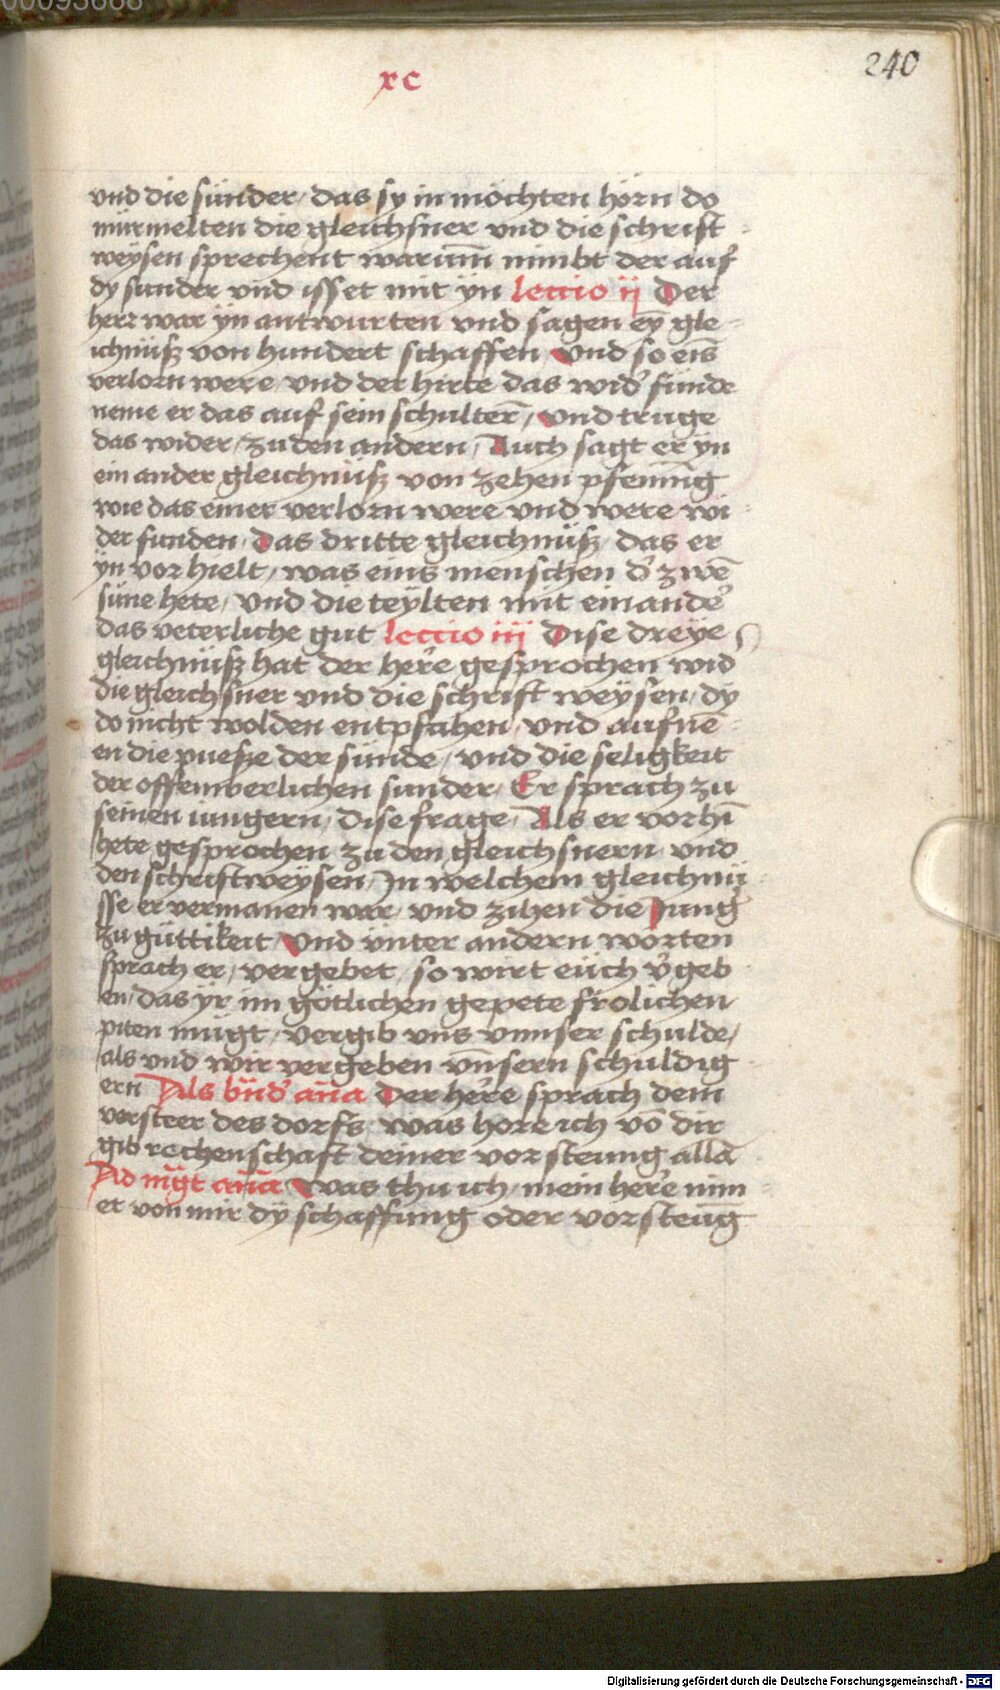 00093668
240
xc
vnd die sünder / das sy in möchten hörn do
mürmelten die gleichsner vnd die schrift
weÿsen sprechent warum̄ nimbt der auf
dy sunder vnd isset mit yn lectio ij Der
herr war ÿn antwurten vnd sagen eȳ gle
ichnüsz von hundert schaffen / Vnd so eins
verlorn were / vnd der hirte das wid' funde
neme er das auf sein schulter̄ / Vnd truge
das wider / zu den andern / Auch sagt er yn
ein ander gleichnüsz von zehen pfennīg
wie das einer verlorn were vnd were wi
der funden / Das dritte gleichnüsz / das er
ÿn vor hielt / was eins menschen d' zwē
süne hete / Vnd die teÿlten mit einande'
das veterliche gut lectio iij Dise dreÿe
gleichnüsz hat der here gesprochen wid
die gleichsner vnd die schrift weÿsen / dÿ
do nicht wolden entpfahen / vnd aufnē
en die puesze der sünde / vnd die seligkeit
der offemberlichen sunder / Er sprach zu
seinen iungern / dise frage / Als er vorhī
hete gesprochen zu den gleichsnern / vnd
den schriftweÿsen / In welchem gleichnü
sse er vermanen war / vnd zihen die Jung'
zu güttikeit / Vnd ünter andern worten
sprach er / vergebet / so wirt eüch v'geb
en / das ÿr im götlichen gepete frolichen /
piten mügt / vergib vns vnnser schulde /
als vnd wir vergeben vn̄sern schuldig
ern Als bn̄d' an̄a Der here sprach dem
versteer des dorfs / was hore ich vō dir
gib rechenschaft deiner vorsteung allā
Ad mḡt an̄a Was thu ich / mein here nim
et von mir dÿ schaffung oder vorsteūg
Digitalisierung gefördert durch die Deutsche Forschungsgemeinschaft - DFG